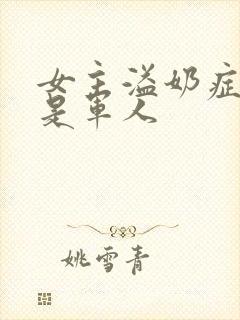 女主溢奶症
是军人
姚雪青